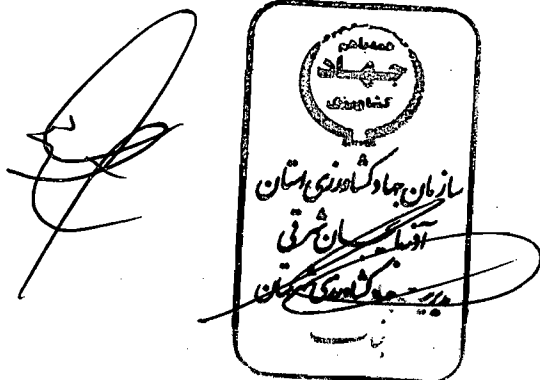 همه باهم
جهاد
کشاورزی
سازمان جهاد کشاورزی استان
آذربایجان شرقی
مدیریت جهاد کشاورزی شهرستان